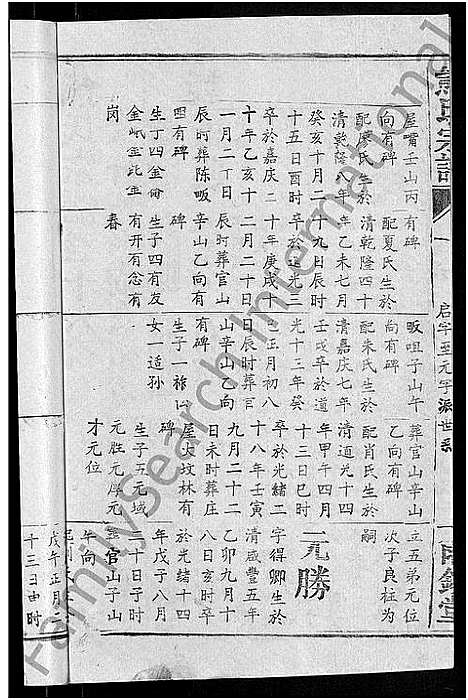 氏宗譜
启字至元字派世系
屋嘴壬山丙
向有碑
配廖氏生於
清乾隆八年
癸亥十月二
十五日酉时
卒於嘉庆二
十年乙亥十
一月二丁日
辰时葬陈畈
四有碑
生子四金
金岷金此金
岗
有碑
配夏氏生於
清乾隆四十
年乙未七月
十九日辰时
卒於道光三
十年庚戌十
二月二十日
辰时葬官山
辛山乙向有
碑
生子四有友
有开有念有
春
畈咀子山午
向有碑
配朱氏生於
清嘉庆七年
壬戌卒於道
光十三年癸
巳正月初八
日辰时葬官
山辛山乙向
有碑
生子一
女一适孙
葬官山辛山
乙向有碑
配肖氏生於
清道光十四
年甲午四月
十三日巳时
卒於光绪二
十八年壬寅
九月二十二
日未时葬庄
屋火坟林有
碑
生子五元域
元胜元厚元
才元位
立五弟元位
次子良柱为
嗣
元勝
字得卿生於
清咸豐五年
乙卯九月十
八日亥时卒
於光绪十四
年戊子八月
二十日子时
葬官山子山
午向
戊午正月
十三日申时
FamilySearch International